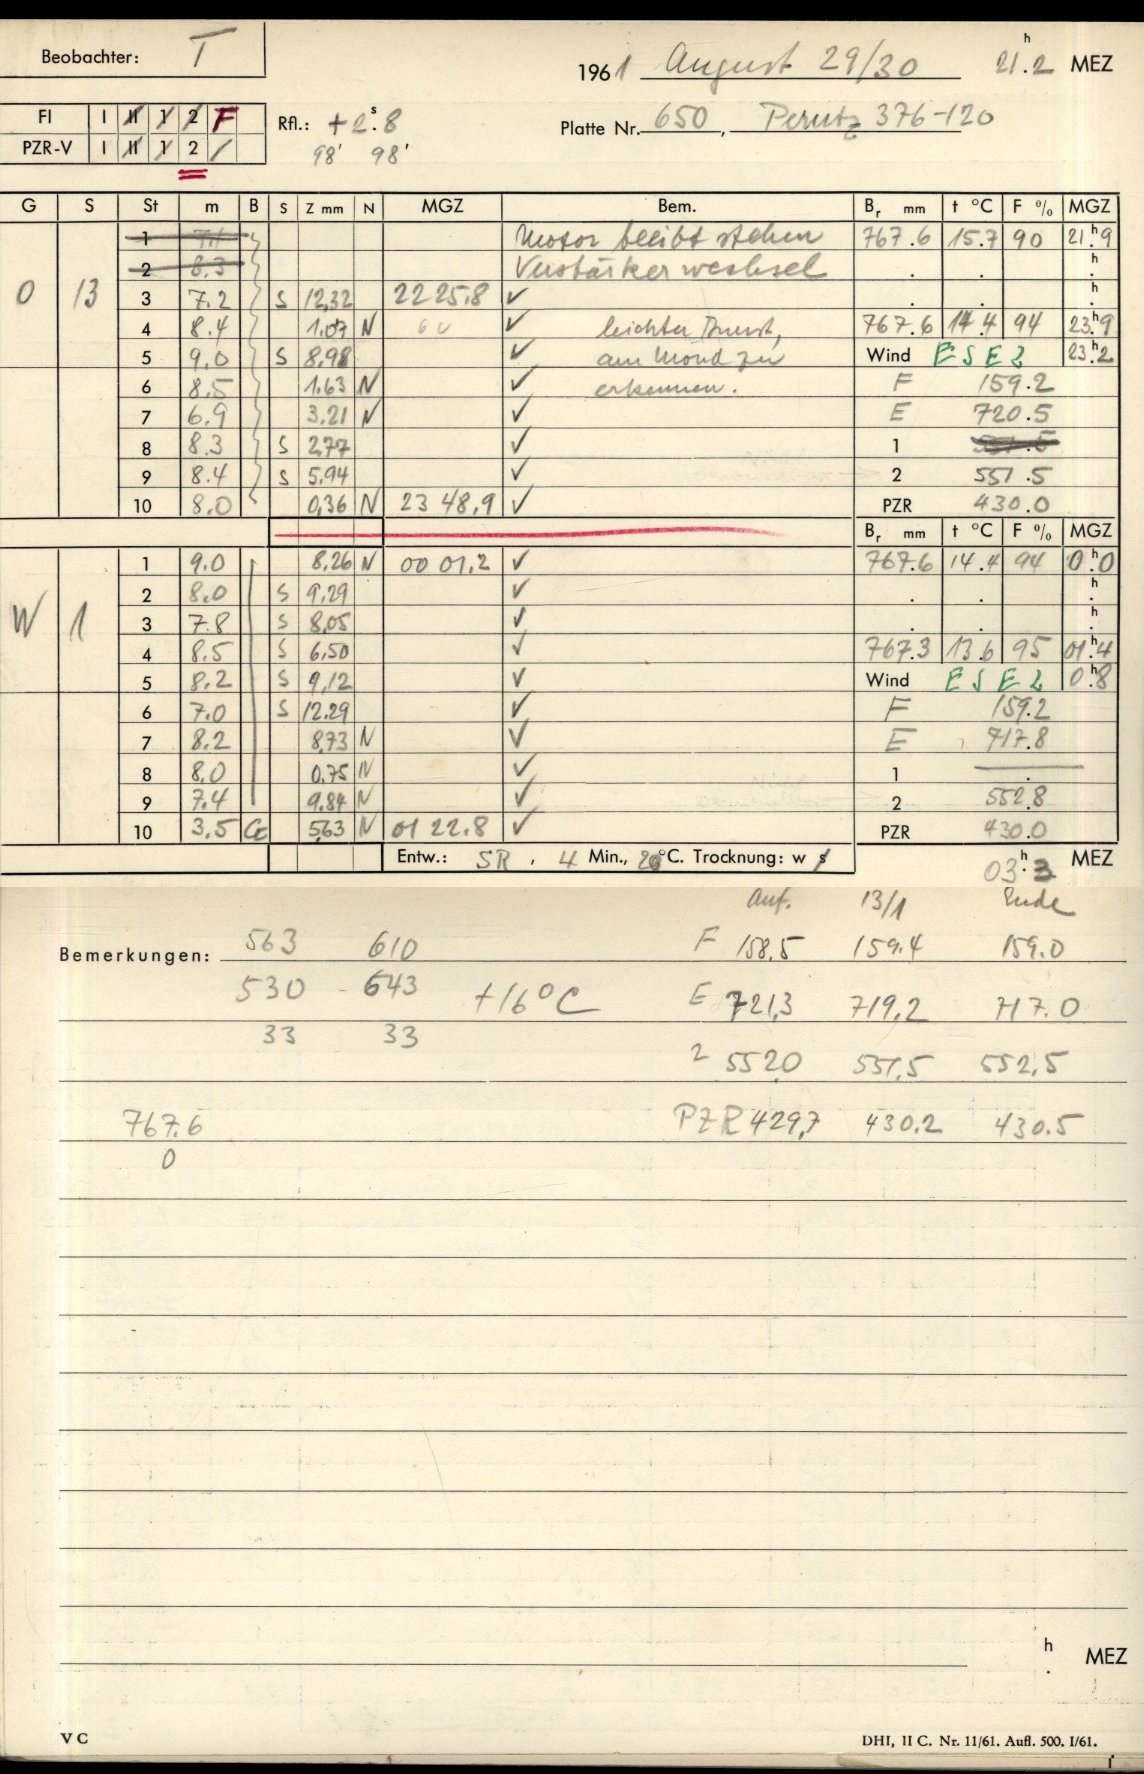 Beobachter: T
1961 August 29/30 21.2 h MEZ
FI I II 1 2 F
PZR-V I II 1 2 /
Rfl.: +2.8 s
98' 98'
Platte Nr. 650, Perutz 376-120
G S St m B S Z mm N MGZ Bem. Br mm t °C F % MGZ
1 Motor bleibt stehen 767.6 15.7 90 21 h 9
2 8.3 Verstärkerwechsel . . h .
O 13 3 7.2 S 12,32 22 25,8 ✓ . . h .
4 8.4 1.07 N ✓ leichter Dunst, 767.6 14.4 94 23 h 9
5 9.0 S 8,98 ✓ am Mond zu Wind ESE2 23 h 2
6 8.5 1.63 N ✓ erkennen. F 159.2
7 6.9 3.21 N ✓ E 720.5
8 8.3 S 2,77 ✓ 1
9 8.4 S 5,94 ✓ 2 551.5
10 8.0 0,36 N 23 48,9 ✓ PZR 430.0
Br mm t °C F % MGZ
1 9.0 8,26 N 00 01,2 ✓ 767.6 14.4 94 0 h 0
2 8.0 S 9,29 ✓ . . h .
W 1 3 7.8 S 8,05 ✓ . . h .
4 8.5 S 6,50 ✓ 767.3 13.6 95 01 h 4
5 8.2 S 9,12 ✓ Wind ESE2 0 h 8
6 7.0 S 12.29 ✓ F 159.2
7 8.2 8,73 N ✓ E 717.8
8 8.0 0,75 N ✓ 1 .
9 7.4 9.84 N ✓ 2 552.8
10 3,5 5,63 N 01 22.8 ✓ PZR 430.0
Entw.: SR, 4 Min., 20 °C. Trocknung: w
03 h 3 MEZ
Anf. 13/1 Ende
Bemerkungen: 563 610 F 158,5 159.4 159.0
530 - 643 +16°C E 721,3 719,2 717.0
33 33
2 5520 551,5 552,5
767.6 PZR 429,7 430.2 430.5
0
h . MEZ
V C DHI, II C. Nr. 11/61. Aufl. 500. I/61.